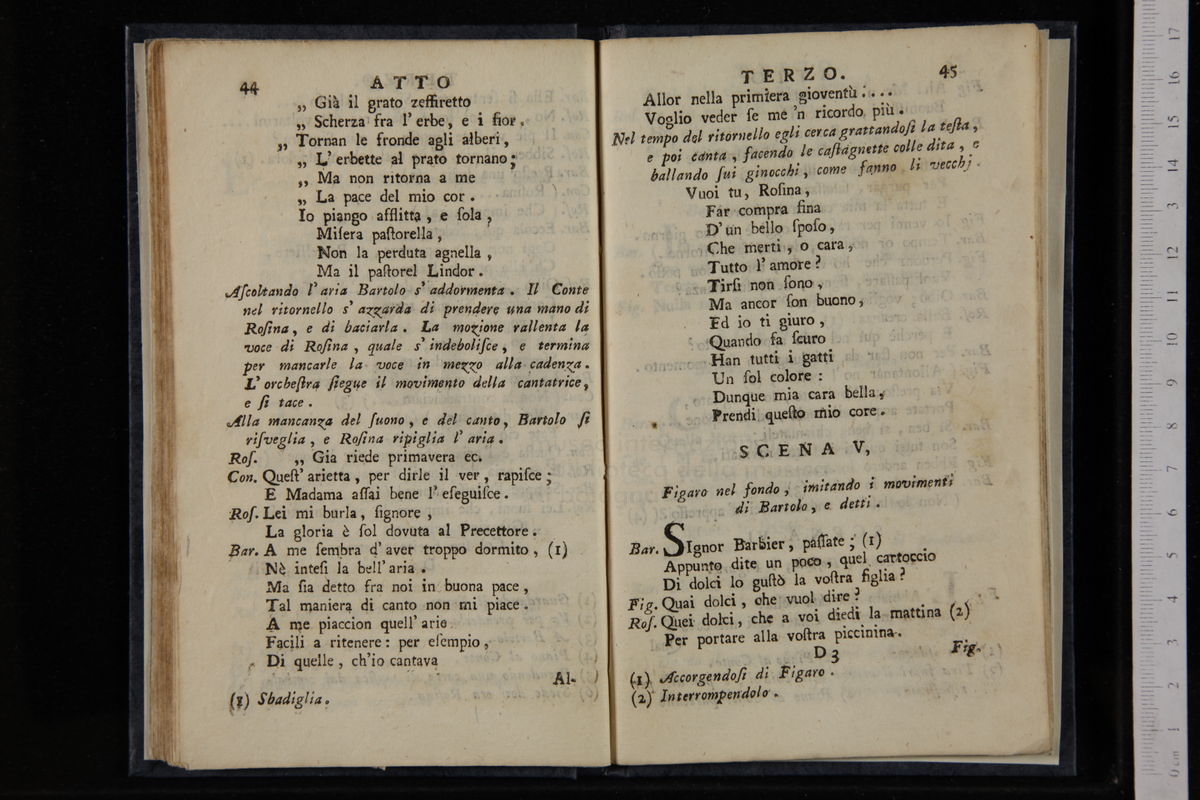 44 ATTO
„ Già il grato zeffiretto
„ Scherza fra l' erbe, e i fior,
„ Tornan le fronde agli alberi,
„ L' erbette al prato tornano;
„ Ma non ritorna a me
„ La pace del mio cor.
Io piango afflitta, e ſola,
Miſera paſtorella,
Non la perduta agnella,
Ma il paſtorel Lindor.
Aſcoltando l' aria Bartolo s' addormenta. Il Conte
nel ritornello s' azzarda di prendere una mano di
Roſina, e di baciarla. La mozione rallenta la
voce di Roſina, quale s' indeboliſce, e termina
per mancarle la voce in mezzo alla cadenza.
L' orcheſtra ſiegue il movimento della cantatrice,
e ſi tace.
Alla mancanza del ſuono, e del canto, Bartolo ſi
riſveglia, e Roſina ripiglia l' aria.
Roſ. „ Gia riede primavera ec.
Con. Queſt' arietta, per dirle il ver, rapiſce;
E Madama aſſai bene l' eſeguiſce.
Roſ. Lei mi burla, ſignore,
La gloria è ſol dovuta al Precettore.
Bar. A me ſembra d' aver troppo dormito, (1)
Nè inteſi la bell' aria.
Ma ſia detto fra noi in buona pace,
Tal maniera di canto non mi piace.
A me piaccion quell' arie
Facili a ritenere: per eſempio,
Di quelle, ch'io cantava
Al-
(1) Sbadiglia.
TERZO. 45
Allor nella primiera gioventù....
Voglio veder ſe me 'n ricordo più.
Nel tempo del ritornello egli cerca grattandoſi la teſta,
e poi canta, facendo le caſtagnette colle dita, e
ballando ſui ginocchi, come fanno li vecchj.
Vuoi tu, Roſina,
Far compra fina
D' un bello ſpoſo,
Che merti, o cara,
Tutto l' amore?
Tirſi non ſono,
Ma ancor ſon buono,
Ed io ti giuro,
Quando fa ſcuro
Han tutti i gatti
Un ſol colore:
Dunque mia cara bella,
Prendi queſto mio core.
SCENA V,
Figaro nel fondo, imitando i movimenti
di Bartolo, e detti.
Bar. SIgnor Barbier, paſſate; (1)
Appunto dite un poco, quel cartoccio
Di dolci lo guſtò la voſtra figlia?
Fig. Quai dolci, che vuol dire?
Roſ. Quei dolci, che a voi diedi la mattina (2)
Per portare alla voſtra piccinina.
D 3 Fig.
(1) Accorgendoſi di Figaro.
(2) Interrompendolo.